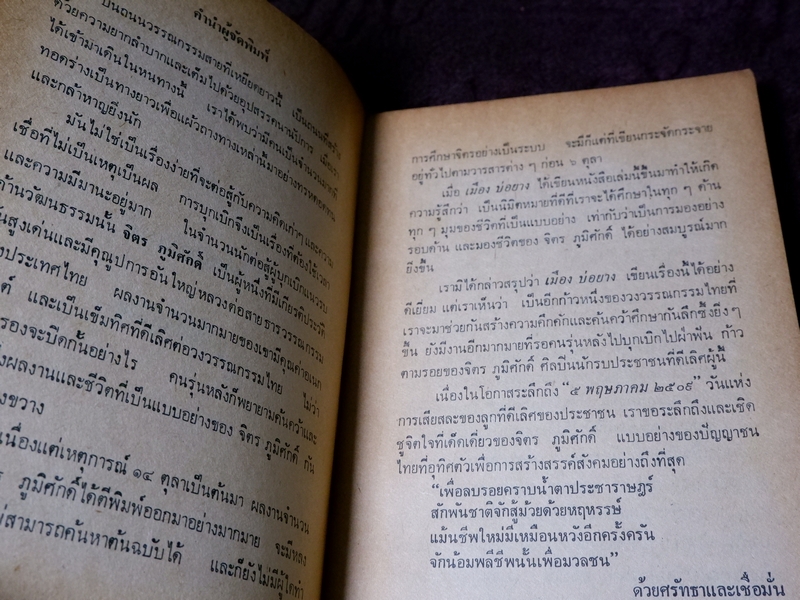 คำนำผู้จัดพิมพ์
บนถนนวรรณกรรมสายที่เหยียดยาวนี้ เป็นถนนที่สร้าง
ด้วยความยากลำบากและเต็มไปด้วยอุปสรรคนานัปการ เมื่อเรา
ได้เข้ามาเดินในหนทางนี้ เราได้พบว่ามีคนเป็นจำนวนมากที่
ทอดร่างเป็นทางยาวเพื่อแผ้วถางทางเหล่านี้มาอย่างทรหดอดทน
และกล้าหาญยิ่งนัก
มันไม่ใช่เป็นเรื่องง่ายที่จะต่อสู้กับความคิดเก่าๆ และความ
เชื่อที่ไม่เป็นเหตุเป็นผล การบุกเบิกจึงเป็นเรื่องที่ต้องใช้เวลา
และความมีมานะอยู่มาก ในจำนวนนักต่อสู้ผู้บุกเบิกแนวรบ
ด้านวัฒนธรรมนั้น จิตร ภูมิศักดิ์ เป็นผู้หนึ่งที่มีเกียรติประวัติ
อันสูงเด่นและมีคุณูปการอันใหญ่หลวงต่อสายธารวรรณกรรม
ประเทศไทย ผลงานจำนวนมากมายของเขามีคุณค่าอเนก
และเป็นเข็มทิศที่ดีเลิศต่อวงวรรณกรรมไทย ไม่ว่า
รองจะปิดกั้นอย่างไร คนรุ่นหลังก็พยายามค้นคว้าและ
ผลงานและชีวิตที่เป็นแบบอย่างของ จิตร ภูมิศักดิ์ กัน
ขวาง
เนื่องแต่เหตุการณ์ ๑๔ ตุลาเป็นต้นมา ผลงานจำนวน
ภูมิศักดิ์ได้ตีพิมพ์ออกมาอย่างมากมาย จะมีหลง
สามารถค้นหาต้นฉบับได้ และก็ยังไม่มีผู้ใดทำ
การศึกษาจิตรอย่างเป็นระบบ จะมีก็แต่ที่เขียนกระจัดกระจาย
อยู่ทั่วไปตามวารสารต่าง ๆ ก่อน ๖ ตุลา
เมื่อ เมือง บ่อยาง ได้เขียนหนังสือเล่มนี้ขึ้นมาทำให้เกิด
ความรู้สึกว่า เป็นนิมิตหมายที่ดีที่เราจะได้ศึกษาในทุก ๆ ด้าน
ทุก ๆ มุมของชีวิตที่เป็นแบบอย่าง เท่ากับว่าเป็นการมองอย่าง
รอบด้าน และมองชีวิตของ จิตร ภูมิศักดิ์ ได้อย่างสมบูรณ์มาก
ยิ่งขึ้น
เรามิได้กล่าวสรุปว่า เมือง บ่อยาง เขียนเรื่องนี้ได้อย่าง
ดีเยี่ยม แต่เราเห็นว่า เป็นอีกก้าวหนึ่งของวงวรรณกรรมไทยที่
เราจะมาช่วยกันสร้างความคึกคักและค้นคว้าศึกษากันลึกซึ้งยิ่ง ๆ
ขึ้น ยังมีงานอีกมากมายที่รอคนรุ่นหลังไปบุกเบิกไปฝ่าฟัน ก้าว
ตามรอยของจิตร ภูมิศักดิ์ ศิลปินนักรบประชาชนที่ดีเลิศผู้นี้
เนื่องในโอกาสระลึกถึง “๕ พฤษภาคม ๒๕๐๙” วันแห่ง
การเสียสละของลูกที่ดีเลิศของประชาชน เราขอระลึกถึงและเชิด
ชูจิตใจที่เด็กเดี่ยวของจิตร ภูมิศักดิ์ แบบอย่างของปัญญาชน
ไทยที่อุทิศตัวเพื่อการสร้างสรรค์สังคมอย่างถึงที่สุด
“เพื่อลบรอยคราบน้ำตาประชาราษฎร์
สักพันชาติจักสู้ม้วยด้วยหฤหรรษ์
แม้นชีพใหม่มีเหมือนหวังอีกครั้งครัน
จักน้อมพลีชีพนั้นเพื่อมวลชน”
ด้วยศรัทธาและเชื่อมั่น